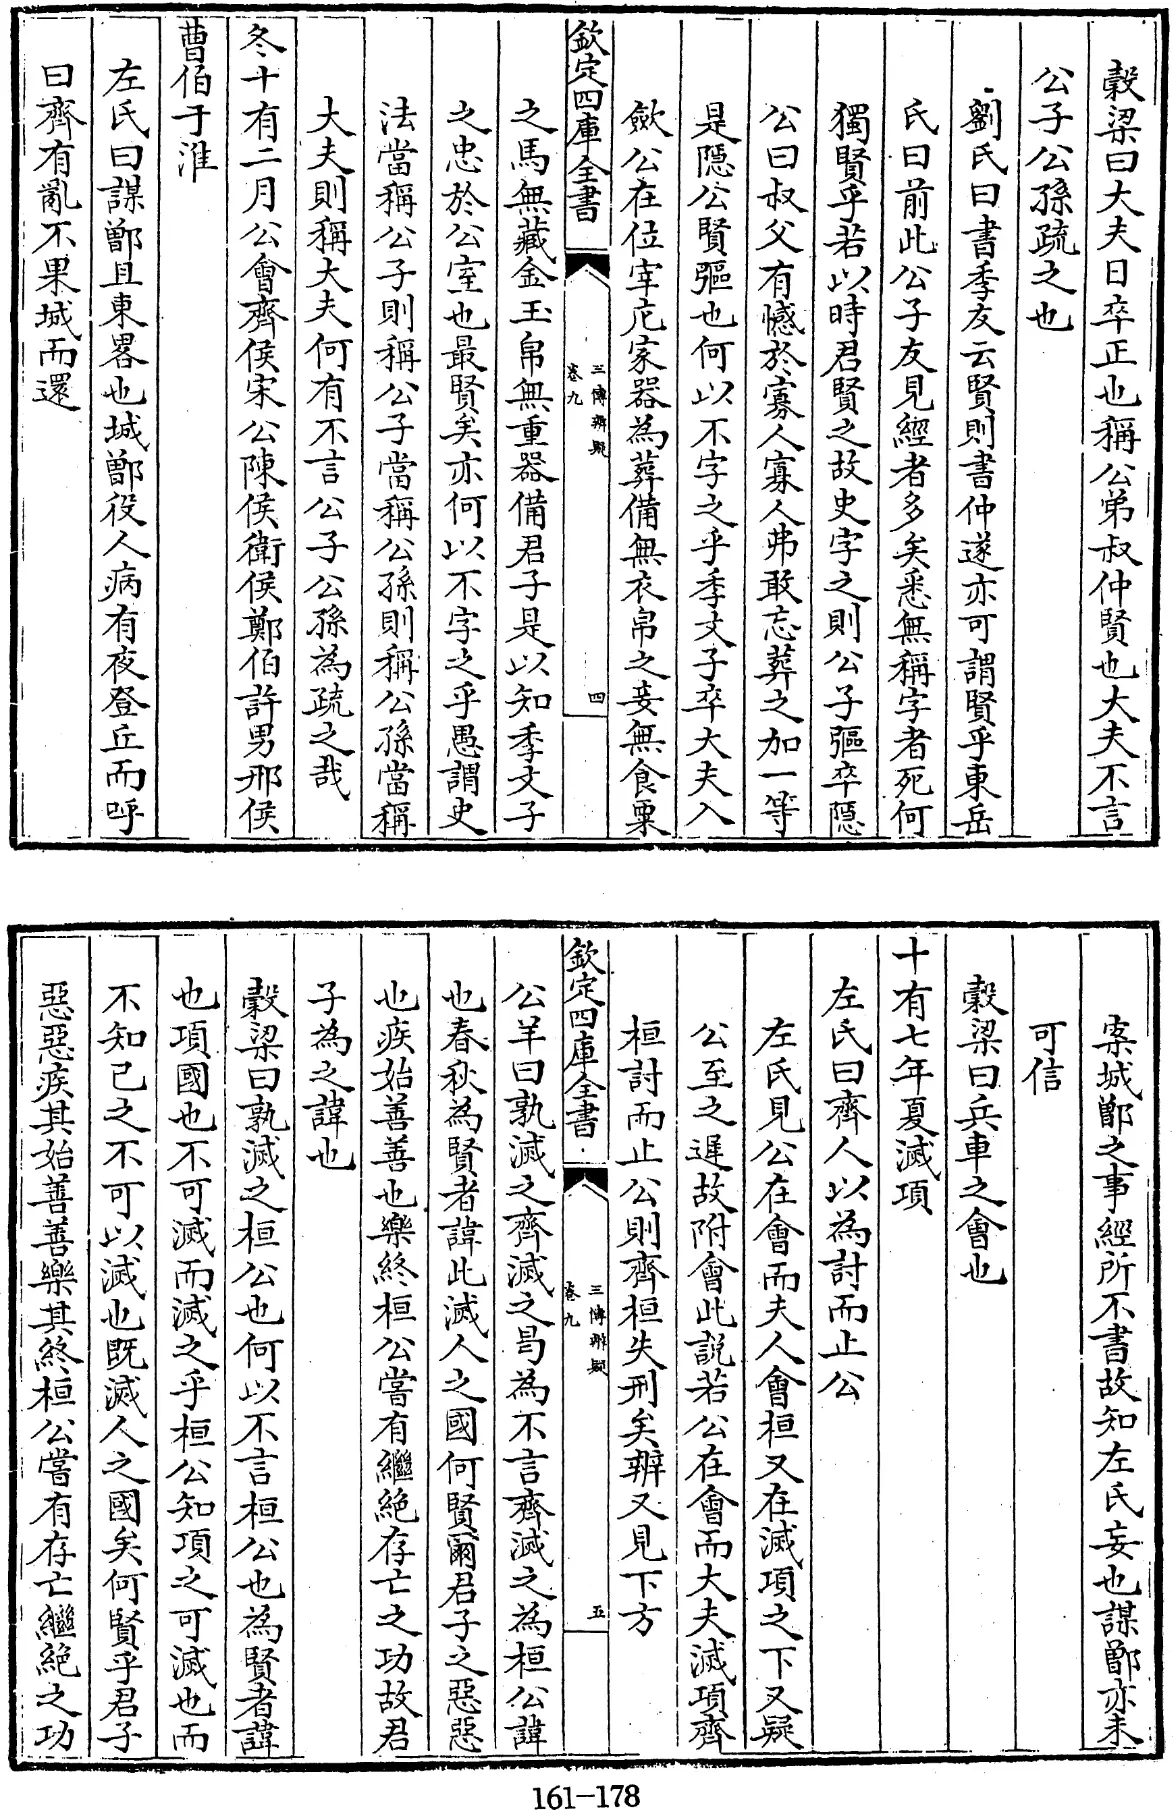 榖梁曰大夫日卒正也稱公弟叔仲賢也大夫不言
公子公孫疏之也
劉氏曰書季友云賢則書仲遂亦可謂賢乎東岳
氏曰前此公子友見經者多矣悉無稱字者死何
獨賢乎若以時君賢之故史字之則公子彄卒隱
公曰叔父有憾於寡人寡人弗敢忘葬之加一等
是隱公賢彄也何以不字之乎季文子卒大夫入
斂公在位宰庀家器為葬備無衣帛之妾無食粟
欽定四庫全書
三傳辨疑
卷九
四
之馬無藏金玉帛無重器備君子是以知季文子
之忠於公室也最賢矣亦何以不字之乎愚謂史
法當稱公子則稱公子當稱公孫則稱公孫當稱
大夫則稱大夫何有不言公子公孫為疏之哉
冬十有二月公會齊侯宋公陳侯衛侯鄭伯許男邢侯
曹伯于淮
左氏曰謀鄫且東畧也城鄫役人病有夜登丘而呼
曰齊有亂不果城而還
案城鄫之事經所不書故知左氏妄也謀鄫亦未
可信
榖梁曰兵車之會也
十有七年夏滅項
左氏曰齊人以為討而止公
左氏見公在會而夫人會桓又在滅項之下又疑
公至之遲故附會此説若公在會而大夫滅項齊
桓討而止公則齊桓失刑矣辨又見下方
欽定四庫全書
三傳辨疑
卷九
五
公羊曰孰滅之齊滅之曷為不言齊滅之為桓公諱
也春秋為賢者諱此滅人之國何賢爾君子之惡惡
也疾始善善也樂終桓公嘗有繼絶存亡之功故君
子為之諱也
榖梁曰孰滅之桓公也何以不言桓公也為賢者諱
也項國也不可滅而滅之乎桓公知項之可滅也而
不知己之不可以滅也既滅人之國矣何賢乎君子
惡惡疾其始善善樂其終桓公嘗有存亡繼絶之功
161-178